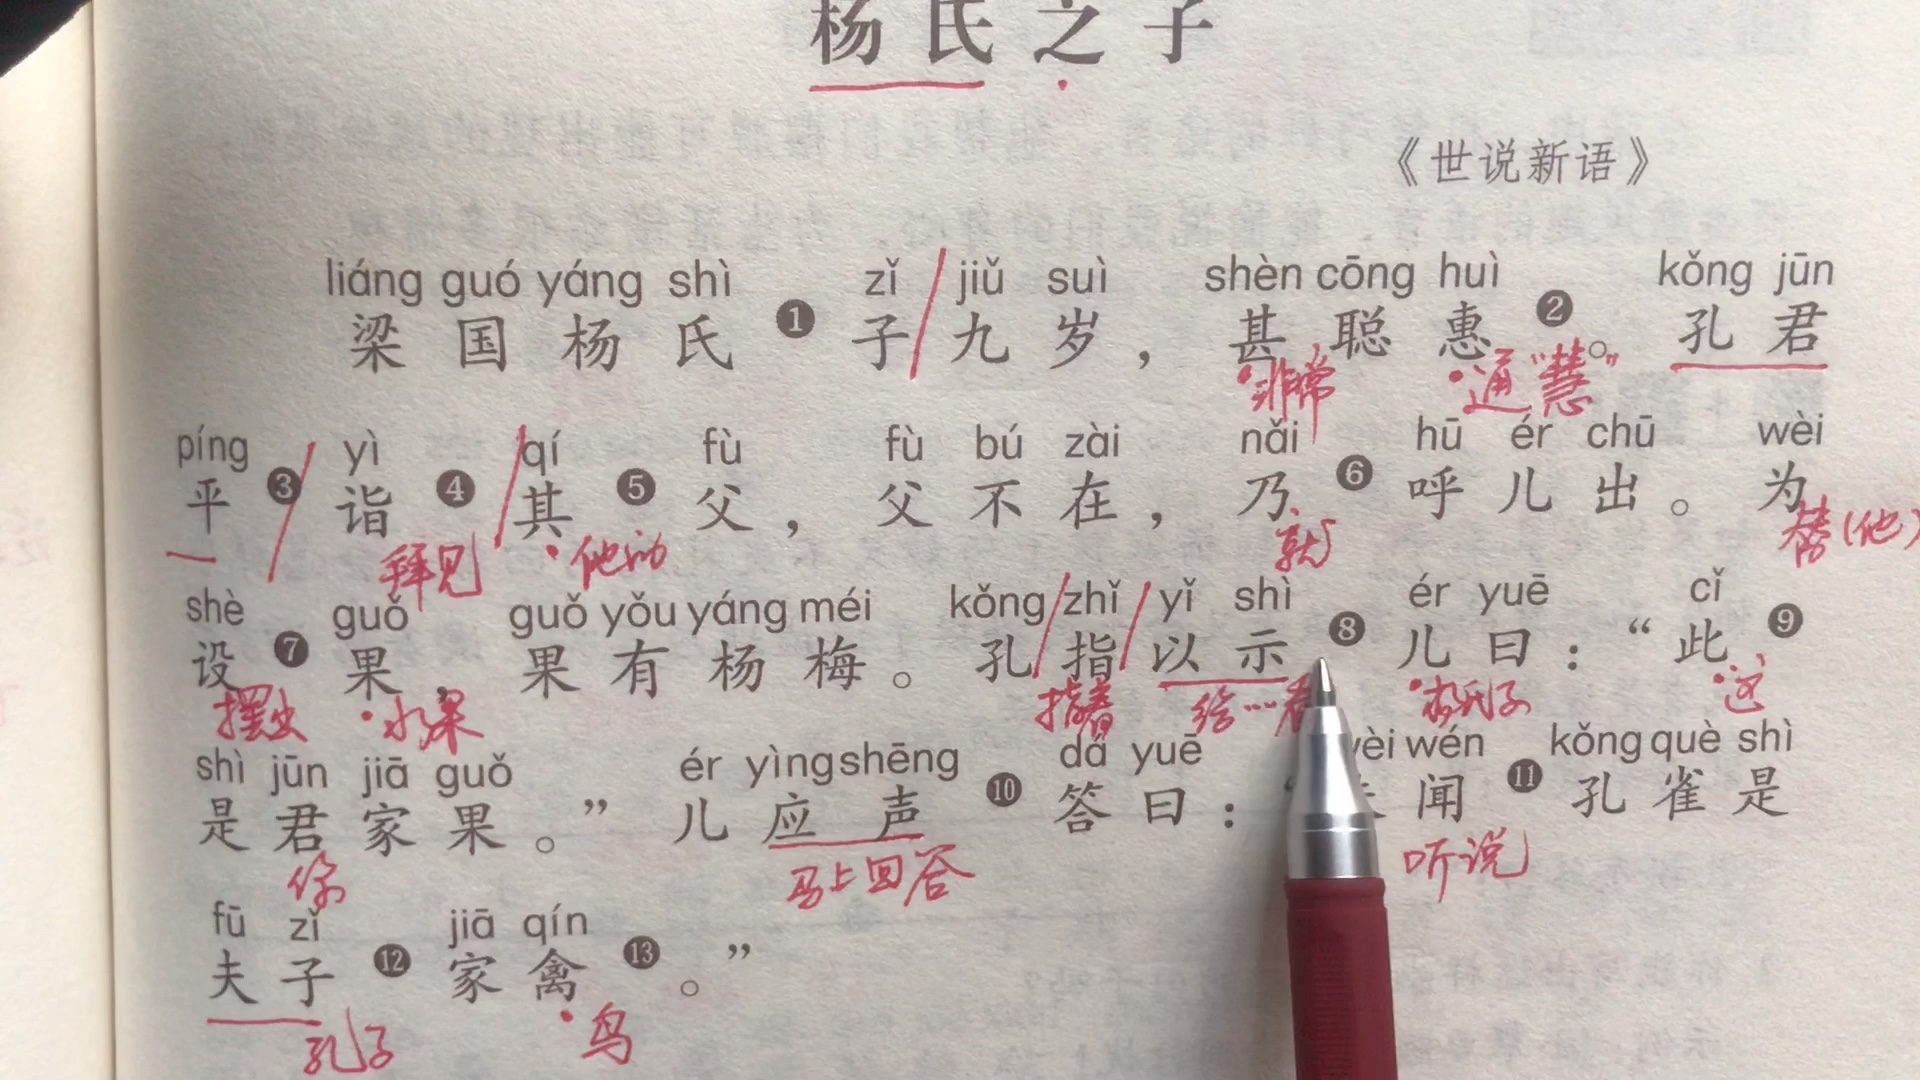 杨氏之子
《世说新语》
liáng guó yáng shì zǐ jiǔ suì shèn cōng huì kǒng jūn
梁国杨氏❶子九岁，甚聪惠❷。孔君
非常 通“慧”
píng yì qí fù fù bú zài nǎi hū ér chū wèi
平❸诣❹其❺父，父不在，乃❻呼儿出。为
拜见 他的 就 替（他）
shè guǒ guǒ yǒu yáng méi kǒng zhǐ yǐ shì ér yuē cǐ
设❼果，果有杨梅。孔指以示❽儿曰：“此❾
摆出 水果 指着 给…看 杨氏子 这
shì jūn jiā guǒ ér yìng shēng dá yuē wèi wén kǒng què shì
是君家果。”儿应声❿答曰：“ 闻⓫孔雀是
你 马上回答 听说
fū zǐ jiā qín
夫子⓬家禽⓭。”
孔子 鸟